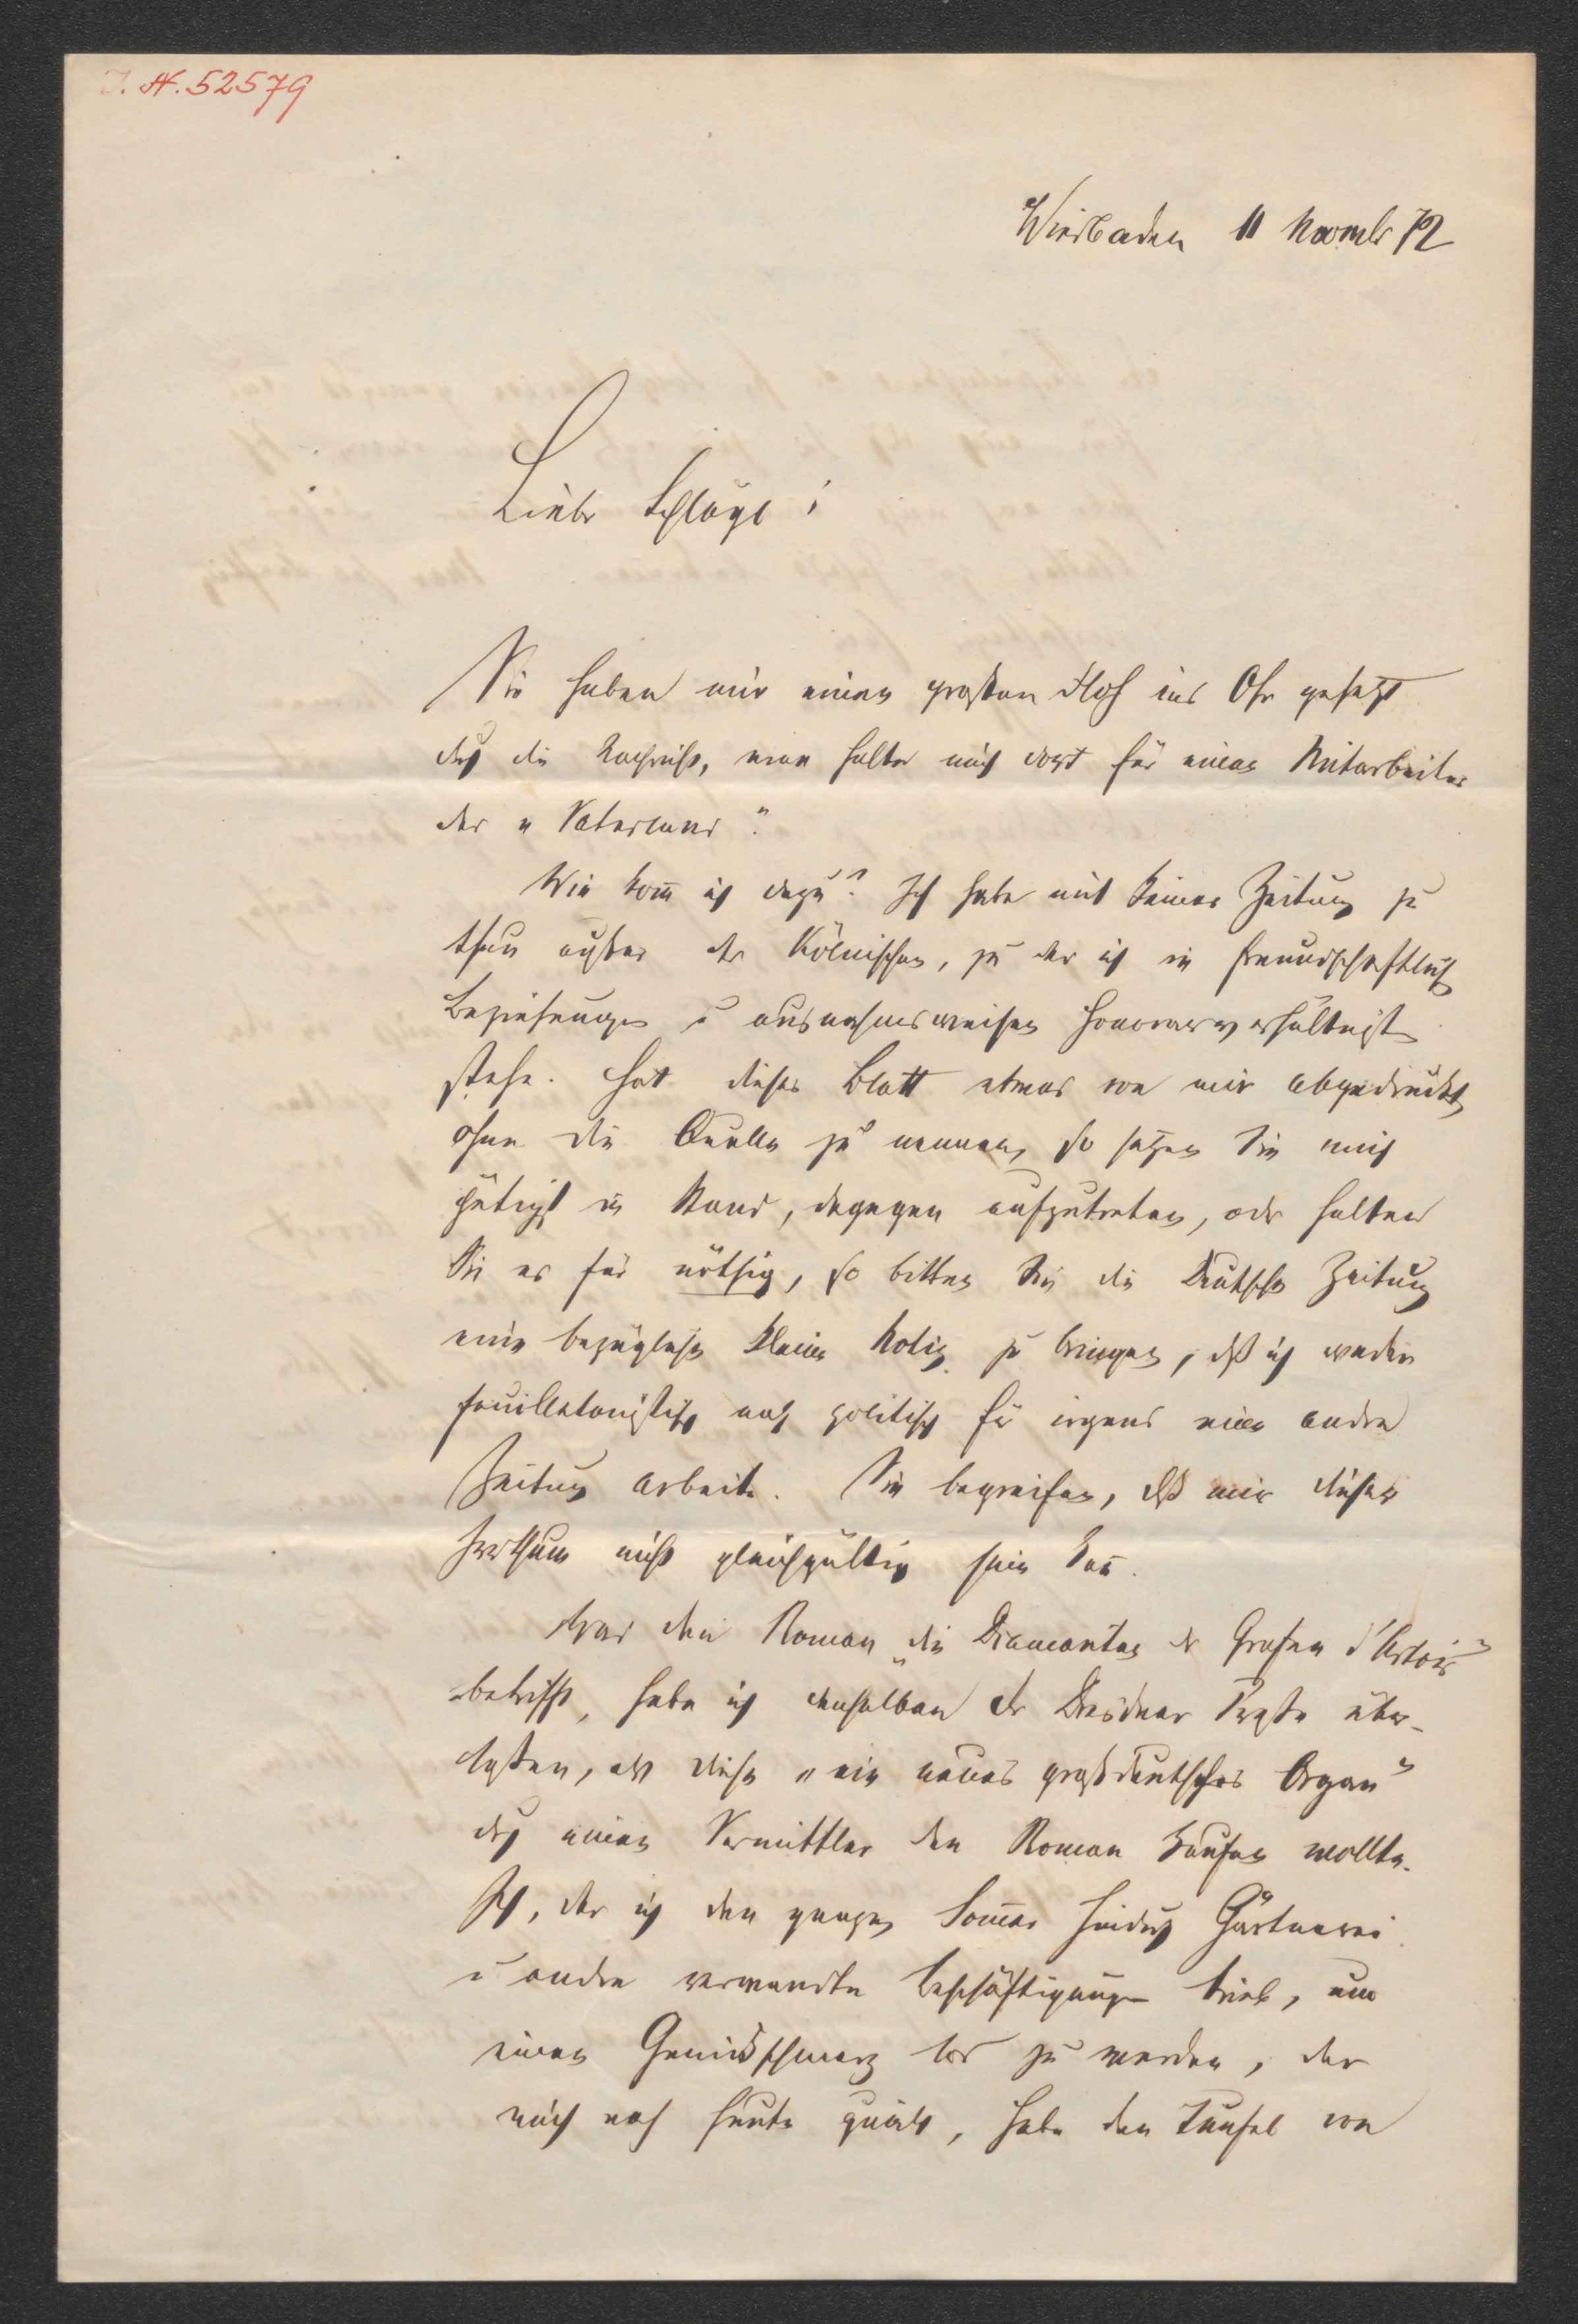 I. N. 52579
Wiesbaden 11 Novmbr 72
Lieber Schlögl!
Sie haben mir einen großen Floh ins Ohr gesetzt
durch die Nachricht, man halte mich dort für einen Mitarbeiter
des „Vaterland".
Wie kom̄ ich dazu? Ich habe mit keiner Zeitung zu
thun außer der Kölnischen, zu der ich in freundschaftlich
Beziehungen u ausnahmsweisen Honorarverhältnissen
stehe. Hat dieses Blatt etwas von mir abgedruckt
ohne die Quelle zu nennen, so setzen Sie mich
gütigst in Stand, dagegen aufzutreten, oder halten
Sie es für nöthig, so bitten Sie die Deutsche Zeitung
eine bezügliche kleine Notiz zu bringen, daß ich weder
feuilletonistisch noch politisch für irgend eine andre
Zeitung arbeite. Sie begreifen, daß mir dieser
Irrthum nicht gleichgültig sein kan̄.
Was den Roman „die Diamanten des Grafen d'Artois"
betrifft, habe ich denselben der Dresdner Presse über-
lassen, als diese „ein neues großdeutsches Organ"
durch einen Vermittler den Roman kaufen wollte.
Ich, der ich den ganzen Som̄er hindurch Gärtnerei
u andre verwandte Beschäftigungen trieb, um
einen Genickschmerz los zu werden, der
mich noch heute quält, habe den Teufel von